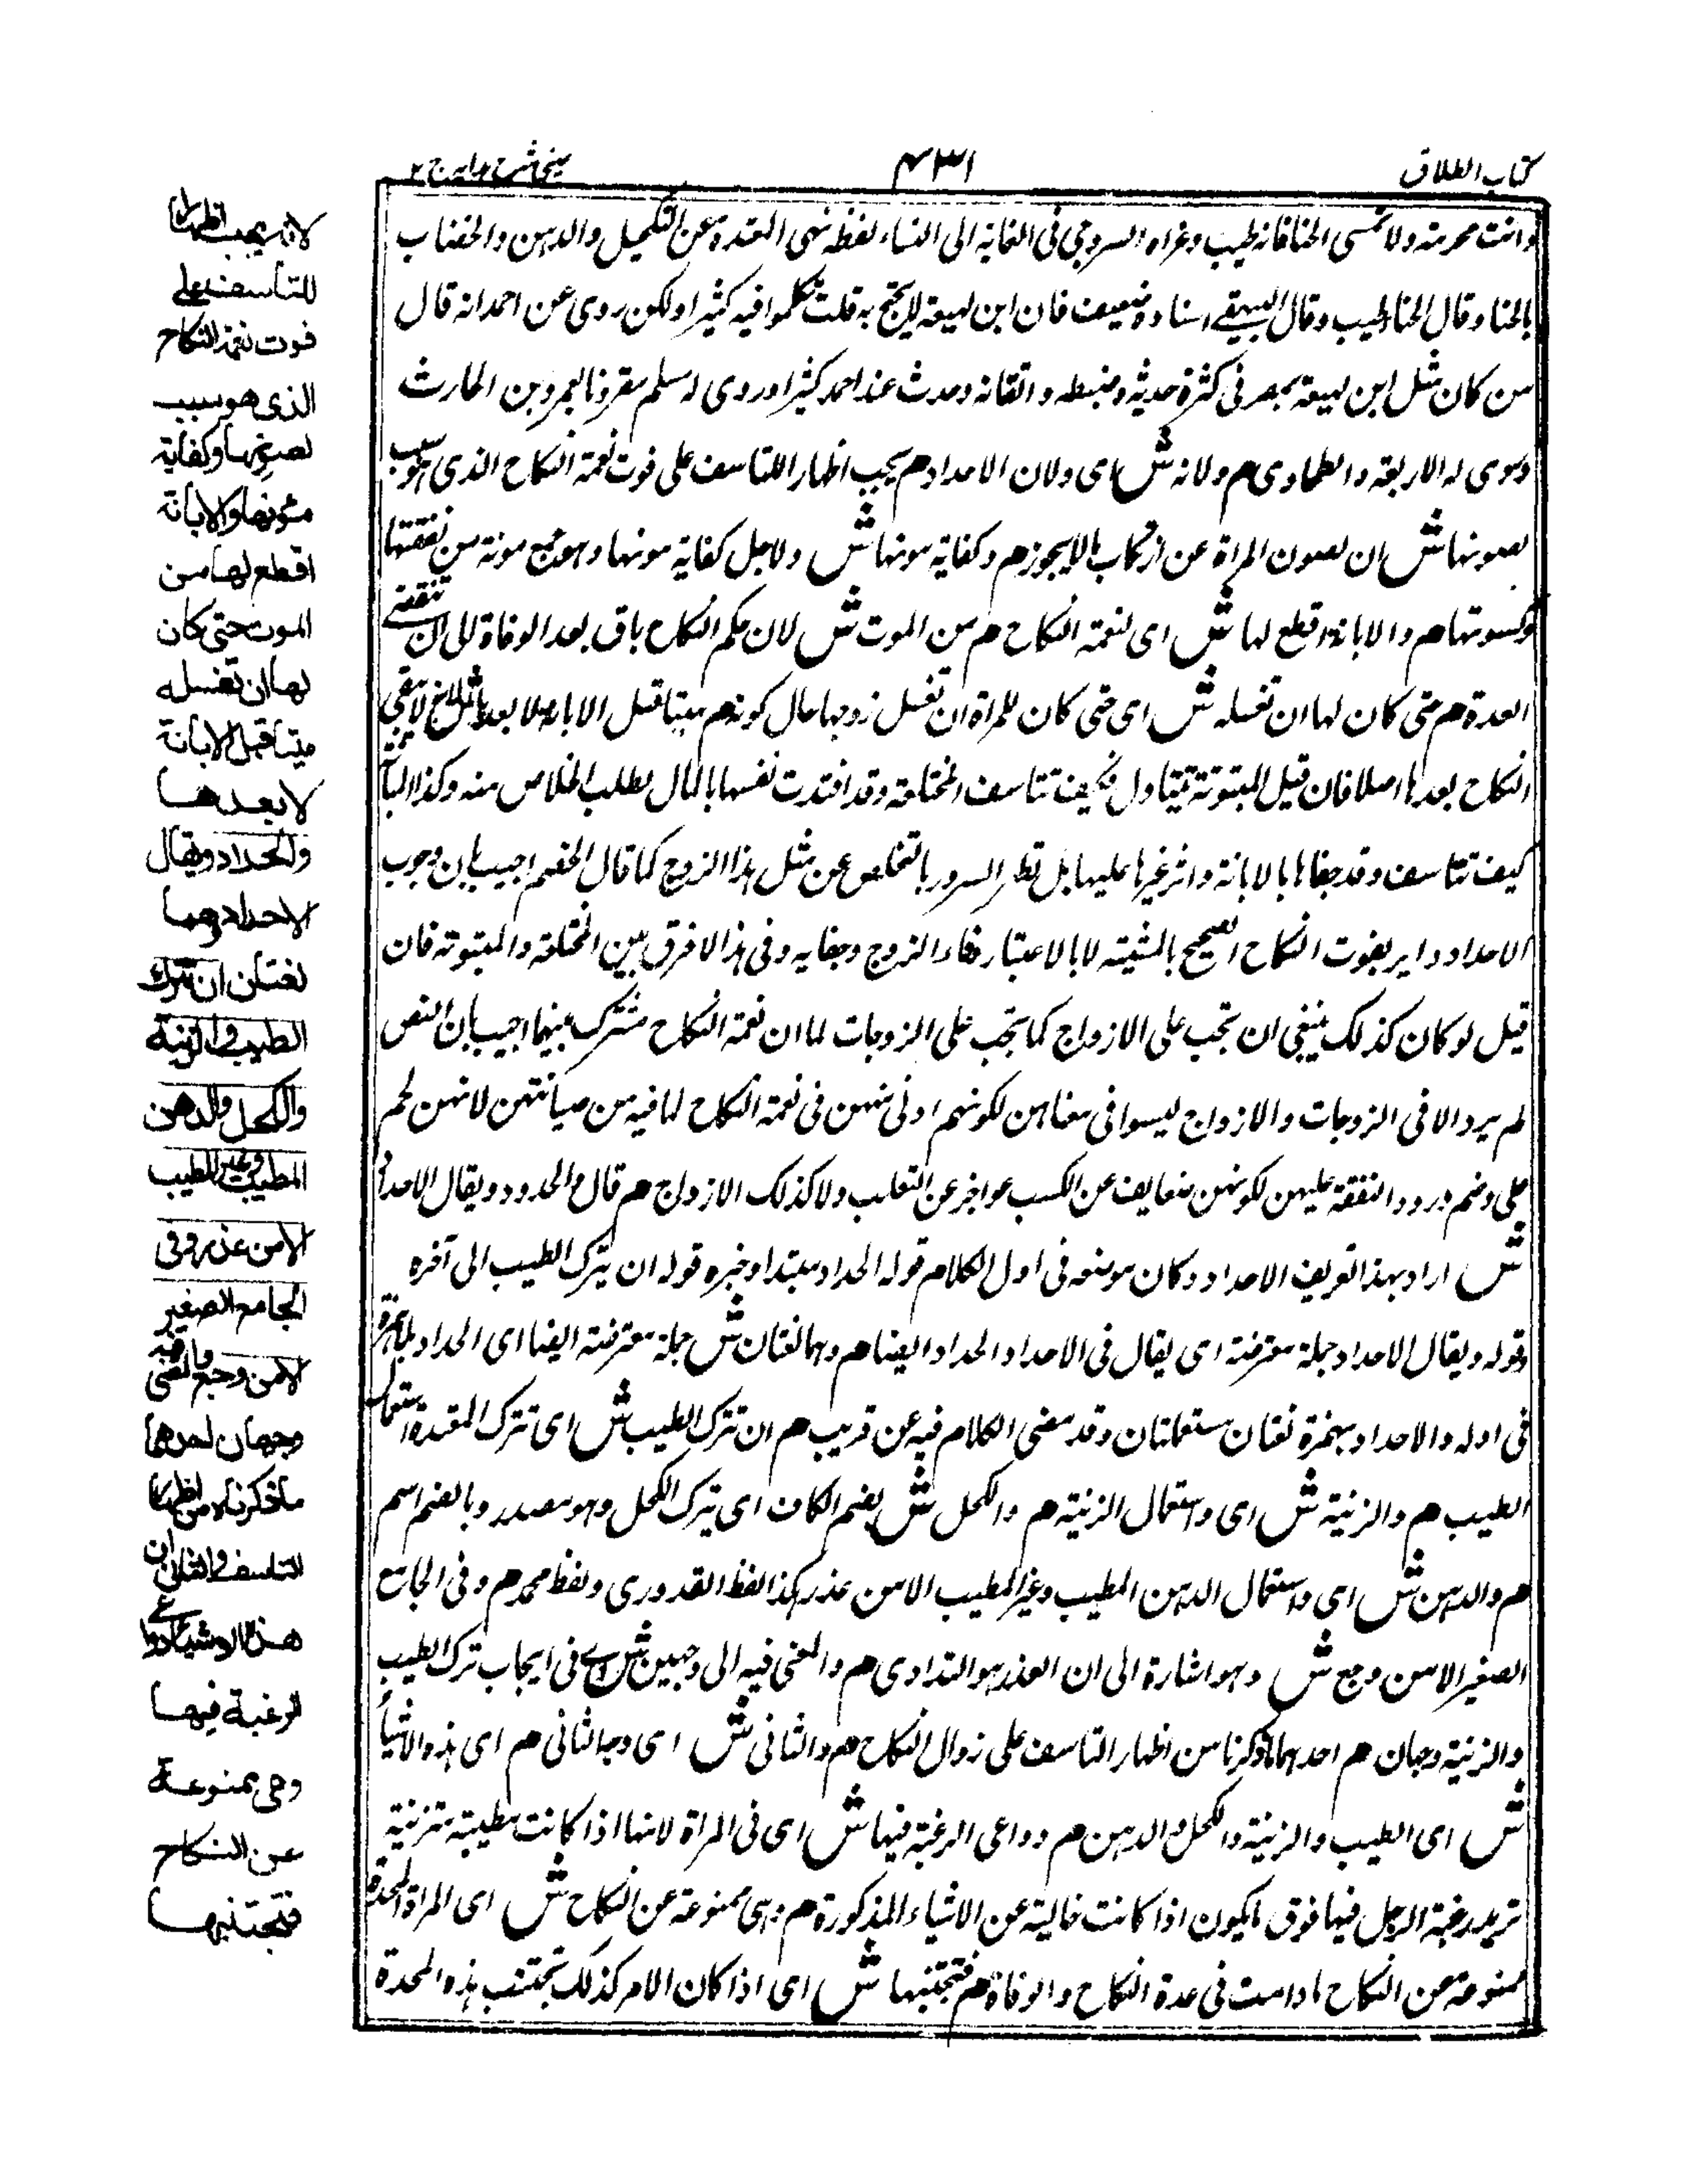 كتاب الطلاق
۴۳۱
عينى شرح هدايه ج ۲
وانت محرمة ولا تمسى الحنا فانه طيب وعزاه السروجى فى الغاية الى النساء لفظه نهى المعتدة عن التكحيل والدهن والخضاب
بالحناء وقال الحنا طيب وقال البيهقے اسناده ضعيف فان ابن لهيعة لا يحتج به قلت تكلموا فيه كثيرا ولكن روى عن احمد انه قال
من كان مثل ابن لهيعة بمصر فى كثرة حديثه وضبطه واتقانه وحدث عنه احمد كثيرا وروى له مسلم مقرونا بعمرو بن الحارث
وروى له الاربعة والطحاوى م ولانه ش اى ولان الاحداد م يجب اظهارا للتاسف على فوت نعمة النكاح الذى هو سبب
لصونها ش ان لصون المراة عن ارتكاب ما لا يجوز م وكفاية مونها ش ولاجل كفاية مونها وهو جمع مونة من نفقتها
وكسوتها م والابانة اقطع لها ش اى لنعمة النكاح م من الموت ش لان حكم النكاح باق بعد الوفاة الى ان تنقضے
العدة م حتى كان لها ان تغسله ش اى حتى كان للمراة ان تغسل زوجها حال كونه م ميتا قبل الابانة لا بعدها ش اى لا يبقى
النكاح بعدها اصلا فان قيل المبتوتة تتناول فكيف تتاسف المختلعة وقد افتدت نفسها بالمال لطلب الخلاص منه وكذا المبانة
كيف تتاسف وقد جفاها بالابانة واثر غيرها عليها بل تظهر السرور بالتخلص عن مثل هذا الزوج كما قال الخصم اجيب بان وجوب
الاحداد داير بفوت النكاح الصحيح بالمشيته لا بالاعتبار وفاء الزوج وجفايه وفى هذا لا فرق بين المختلعة والمبتوتة فان
قيل لو كان كذلك ينبغى ان تجب على الازواج كما تجب على الزوجات لما ان نعمة النكاح مشترك بينهما اجيب بان النص
لم يرد الا فى الزوجات والازواج ليسوا فى معناهن لكونهم ادنى منهن فى نعمة النكاح لما فيه من صيانتهن لانهن لحم
على وضم ودرود النفقة عليهن لكونهن ضعايف عن الكسب عواجز عن التقلب ولا كذلك الازواج م قال والحدود ويقال الاحداد
ش اراد بهذا تعريف الاحداد وكان موضعه فى اول الكلام قوله الحداد مبتدا وخبره قوله ان يترك الطيب الى آخره
وقوله ويقال الاحداد جملة معترضة اى يقال فى الاحداد الحداد ايضا م وهما لغتان ش جملة معترضة ايضا اى الحداد بلا همزة
فى اوله والاحداد بهمزة لغتان مستعملتان وقد مضى الكلام فيه عن قريب م ان تترك الطيب ش اى تترك المعتدة استعمال
الطيب م والزينة ش اى واستعمال الزينة م والكحل ش بضم الكاف اى يترك الكحل وهو مصدر وبالضم اسم
م والدهن ش اى واستعمال الدهن المطيب وغير المطيب الا من عذر هكذا لفظ القدورى ولفظ محمد م وفى الجامع
الصغير الا من وجع ش وهو اشارة الى ان العذر هو التداوى م والمعنى فيه الى وجهين ش اے فى ايجاب ترك الطيب
والزينة وجهان م احدهما ما ذكرنا من اظهار التاسف على زوال النكاح م والثانى ش اى وجه الثانى م اى هذه الاشياء
ش اى الطيب والزينة والكحل والدهن م دواعى الرغبة فيها ش اى فى المراة لانها اذا كانت مطيبة متزينة
تزيد رغبة الرجل فيها فوق ما يكون اذا كانت خالية عن الاشياء المذكورة م وهى ممنوعة عن النكاح ش اى المراة المحدة
ممنوعة عن النكاح ما دامت فى عدة النكاح والوفاة م فتجتنبها ش اى اذا كان الامر كذلك تجتنب هذه المحدة
لانه يجب اظهارا
للتأسف على
فوت نعمة النكاح
الذى هو سبب
لصونها وكفاية
مؤنها والابانة
اقطع لها من
الموت حتى كان
لها ان تغسله
ميتا قبل الابانة
لا بعدها
والحداد ويقال
الاحداد وهما
لغتان ان تترك
الطيب والزينة
والكحل والدهن
المطيب وغير المطيب
الا من عذر وفى
الجامع الصغير
الا من وجع والمعنى فيه
وجهان احدهما
ما ذكرناه من اظهار
التاسف والثانى ان
هذه الاشياء دواعے
الرغبة فيها
وهى ممنوعة
عن النكاح
فتجتنبها